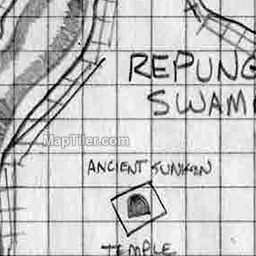 REPUNG
SWAM
MapTiler.com
ANCIENT SUNKEN
TEMPLE